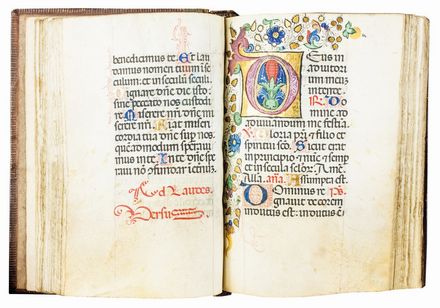 benedicimus te. Et lau
damus nomen tuum i se
culum: et in seculū seculi.
Dignare dñe die isto:
sine peccato nos custodi
re. Miserere nr̄i dñe: mi
serere nr̄i. Fiat miseri
cordia tua dñe sup nos:
quēadmodum sperauī
mus in te. In te dñe spe
raui nō ɔfundar i eternū.
Ad Laudes.
Versus.
Deus in
adiutorī
um meuȝ
intende.
R. Do
mine ad
adiuuandum me festīa.
Gloria pr̄i ⁊ filio et
spiritui sc̄o. Sicut erat
in principio ⁊ nūc ⁊ semp
et in secula seloȝ. Amē.
Alla. aña. Assumpta est.
Dominus re ps.
gnauit decorem
indutus est: indutus ē